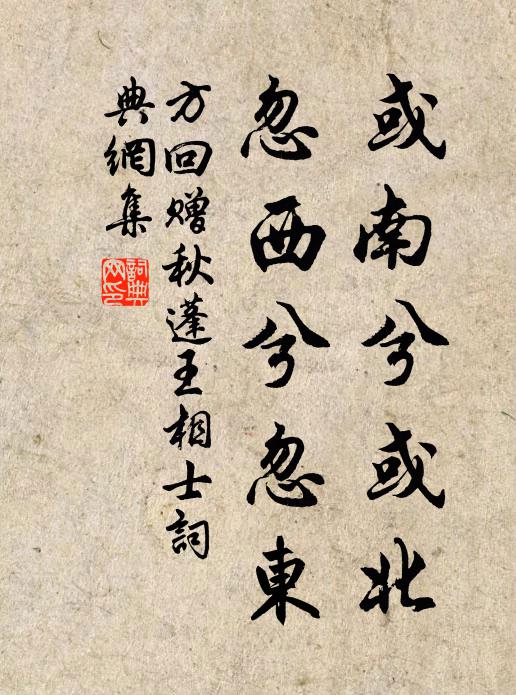 或南兮或北
忽西兮忽東
方回贈秋蓬王相士詞
典網集
詞典
网印